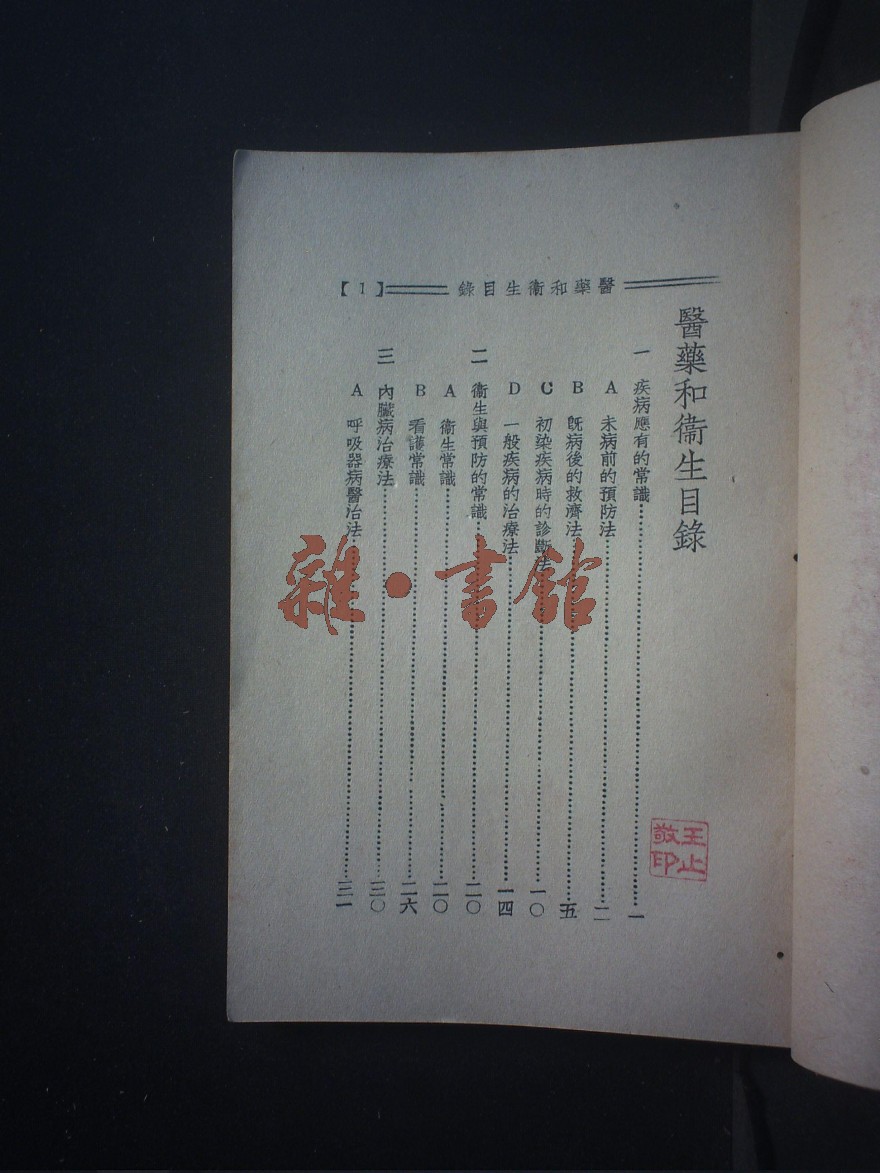 醫藥和衞生目錄 【1】
醫藥和衞生目錄
一 疾病應有的常識……一
A 未病前的預防法……二
B 旣病後的救濟法……五
C 初染疾病時的診斷法……一〇
D 一般疾病的治療法……一四
二 衞生與預防的常識……二〇
A 衞生常識……二〇
B 看護常識……二六
三 內臟病治療法……三〇
A 呼吸器病醫治法……三一
王止敬印
雜·書館